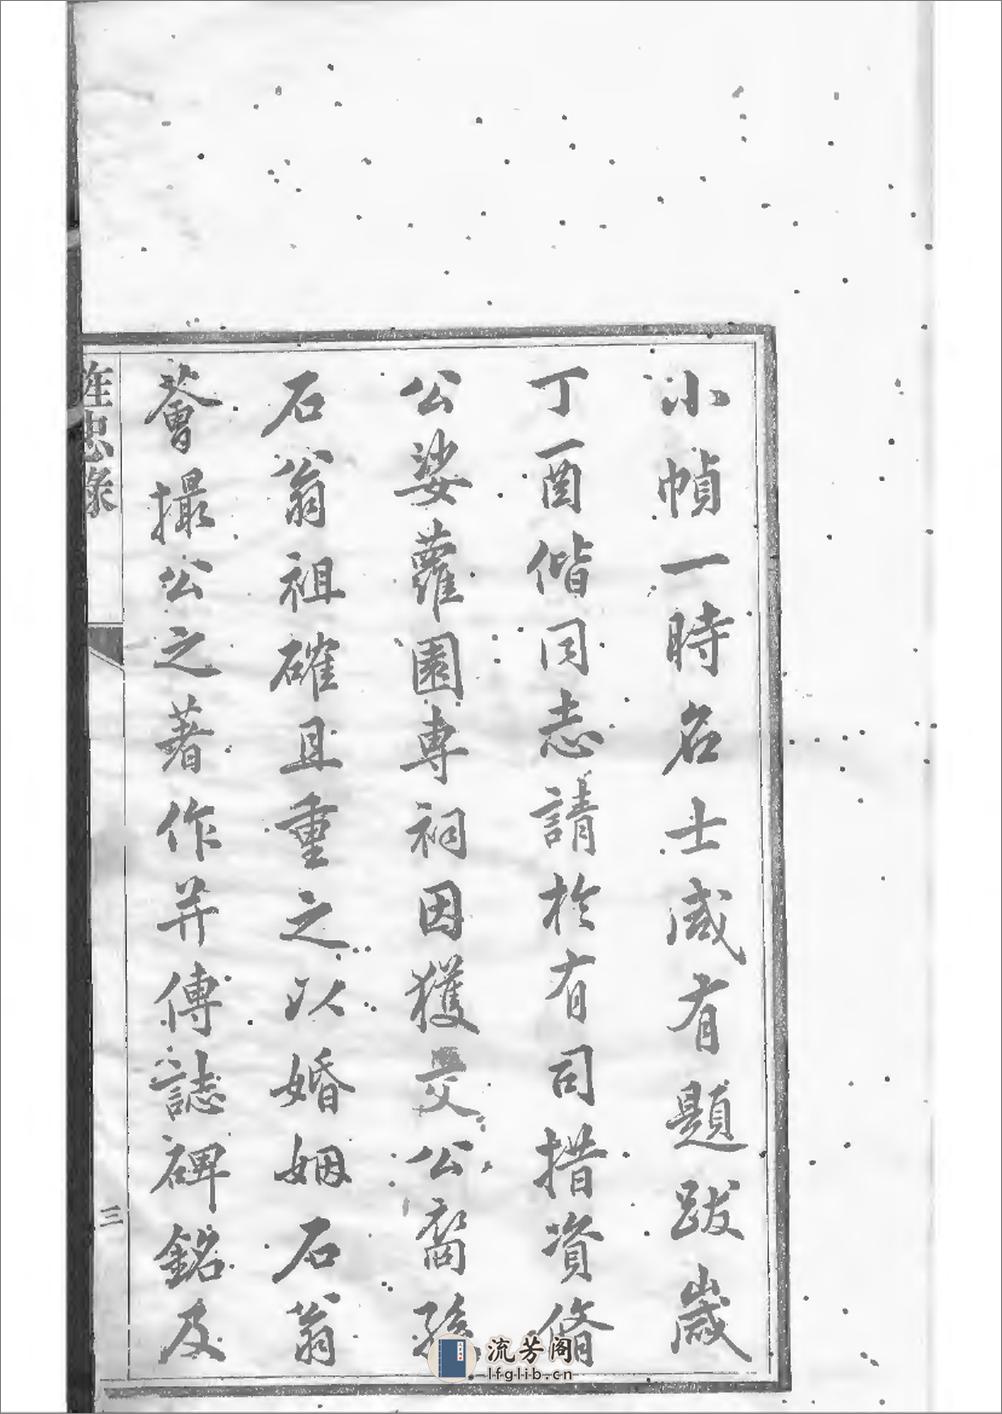 小幀一時名士咸有題跋歲
丁酉偕同志請於有司措資脩
公娑蘿園專祠因獲交公裔孫
石翁祖確且重之以婚姻石翁
薈撮公之著作并傳誌碑銘及
旌忠錄
三
流芳阁
lfglib.cn